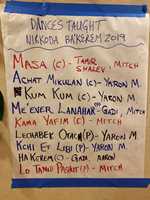 DANCES TAUGHT
NIRKODA BA'KEREM 2019
MASA (C) - TAMIR SHALEV | MITCH
ACHAT MIKULAN (C) - YARON M.
KUM KUM (C) - YARON M
ME'EVER LANAHAR - GADI, MITCH
KAMA YAFIM (C) - MITCH
LECHABEK OTACH (P) - YARON M.
KCHI ET LIBI (P) - YARON M.
HAKEREM (C) - GADI, AARON
LO TANUU PASHUT (P) - MITCH